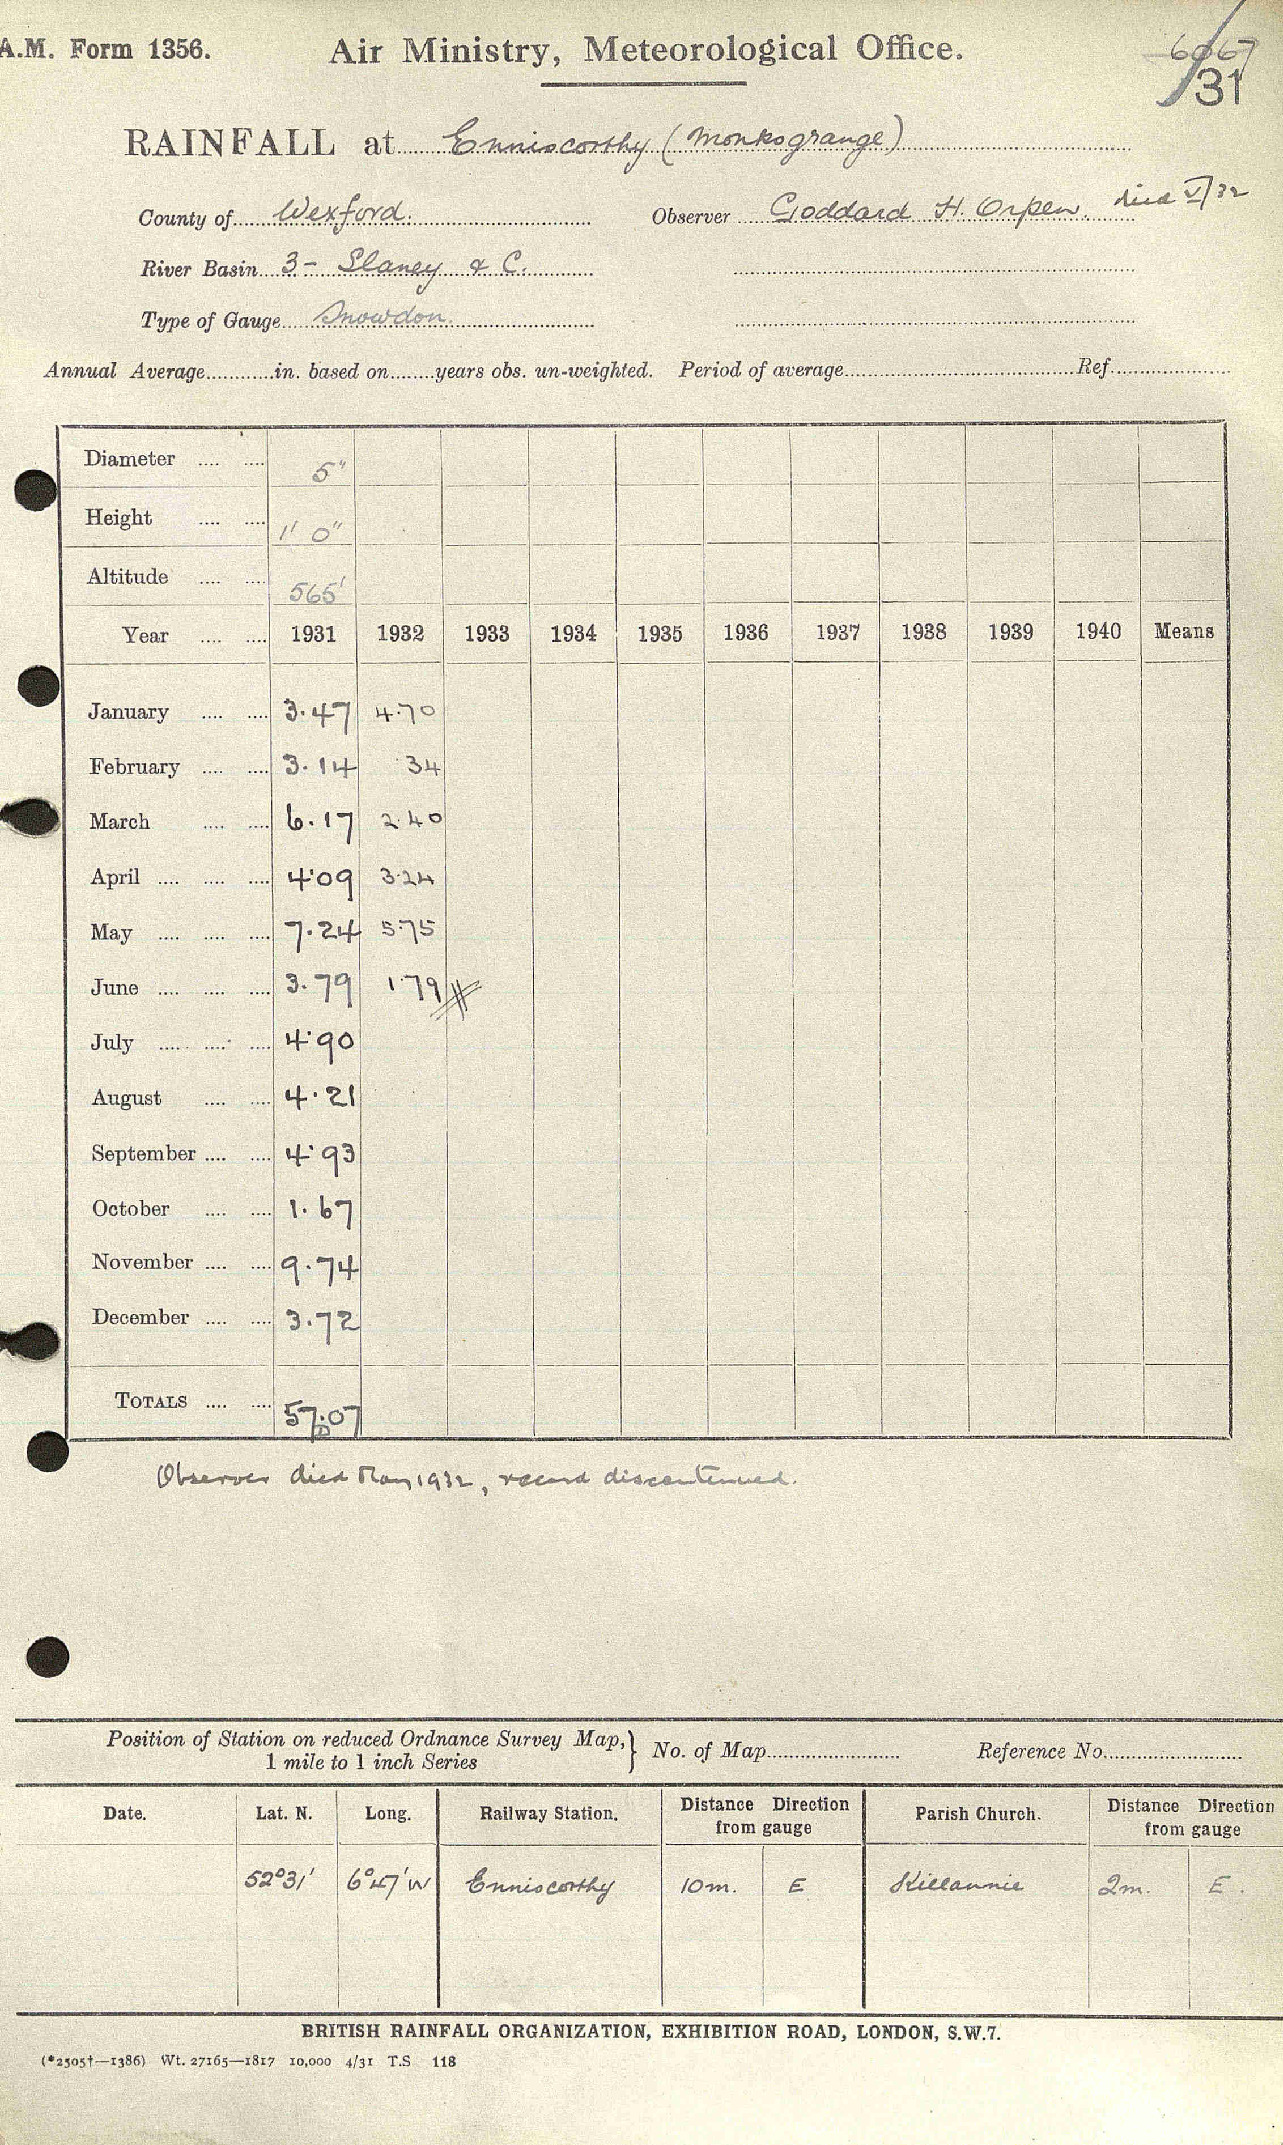 A.M. Form 1356.
Air Ministry, Meteorological Office.
6067
31
RAINFALL at Enniscorthy (Monksgrange)
County of Wexford. Observer Goddard H. Orpen. died V/32
River Basin 3- Slaney & C.
Type of Gauge Snowdon.
Annual Average............in. based on........years obs. un-weighted. Period of average........................................Ref.....................
Diameter .... .... 5"
Height .... .... 1' 0"
Altitude .... .... 565'
Year .... .... 1931 1932 1933 1934 1935 1936 1937 1938 1939 1940 Means
January .... .... 3.47 4.70
February .... .... 3.14 .34
March .... .... 6.17 2.40
April .... .... .... 4.09 3.24
May .... .... .... 7.24 5.75
June .... .... .... 3.79 1.79
July .... .... .... 4.90
August .... .... 4.21
September .... .... 4.93
October .... .... 1.67
November .... .... 9.74
December .... .... 3.72
TOTALS .... .... 57.07
Observer died May 1932, record discontinued.
Position of Station on reduced Ordnance Survey Map, } No. of Map........................ Reference No........................
1 mile to 1 inch Series
Date. Lat. N. Long. Railway Station. Distance Direction from gauge Parish Church. Distance Direction from gauge
52°31' 6°47'W Enniscorthy 10m. E Killannie 2m. E.
BRITISH RAINFALL ORGANIZATION, EXHIBITION ROAD, LONDON, S.W.7.
(*2505†—1386) Wt. 27165—1817 10,000 4/31 T.S 118